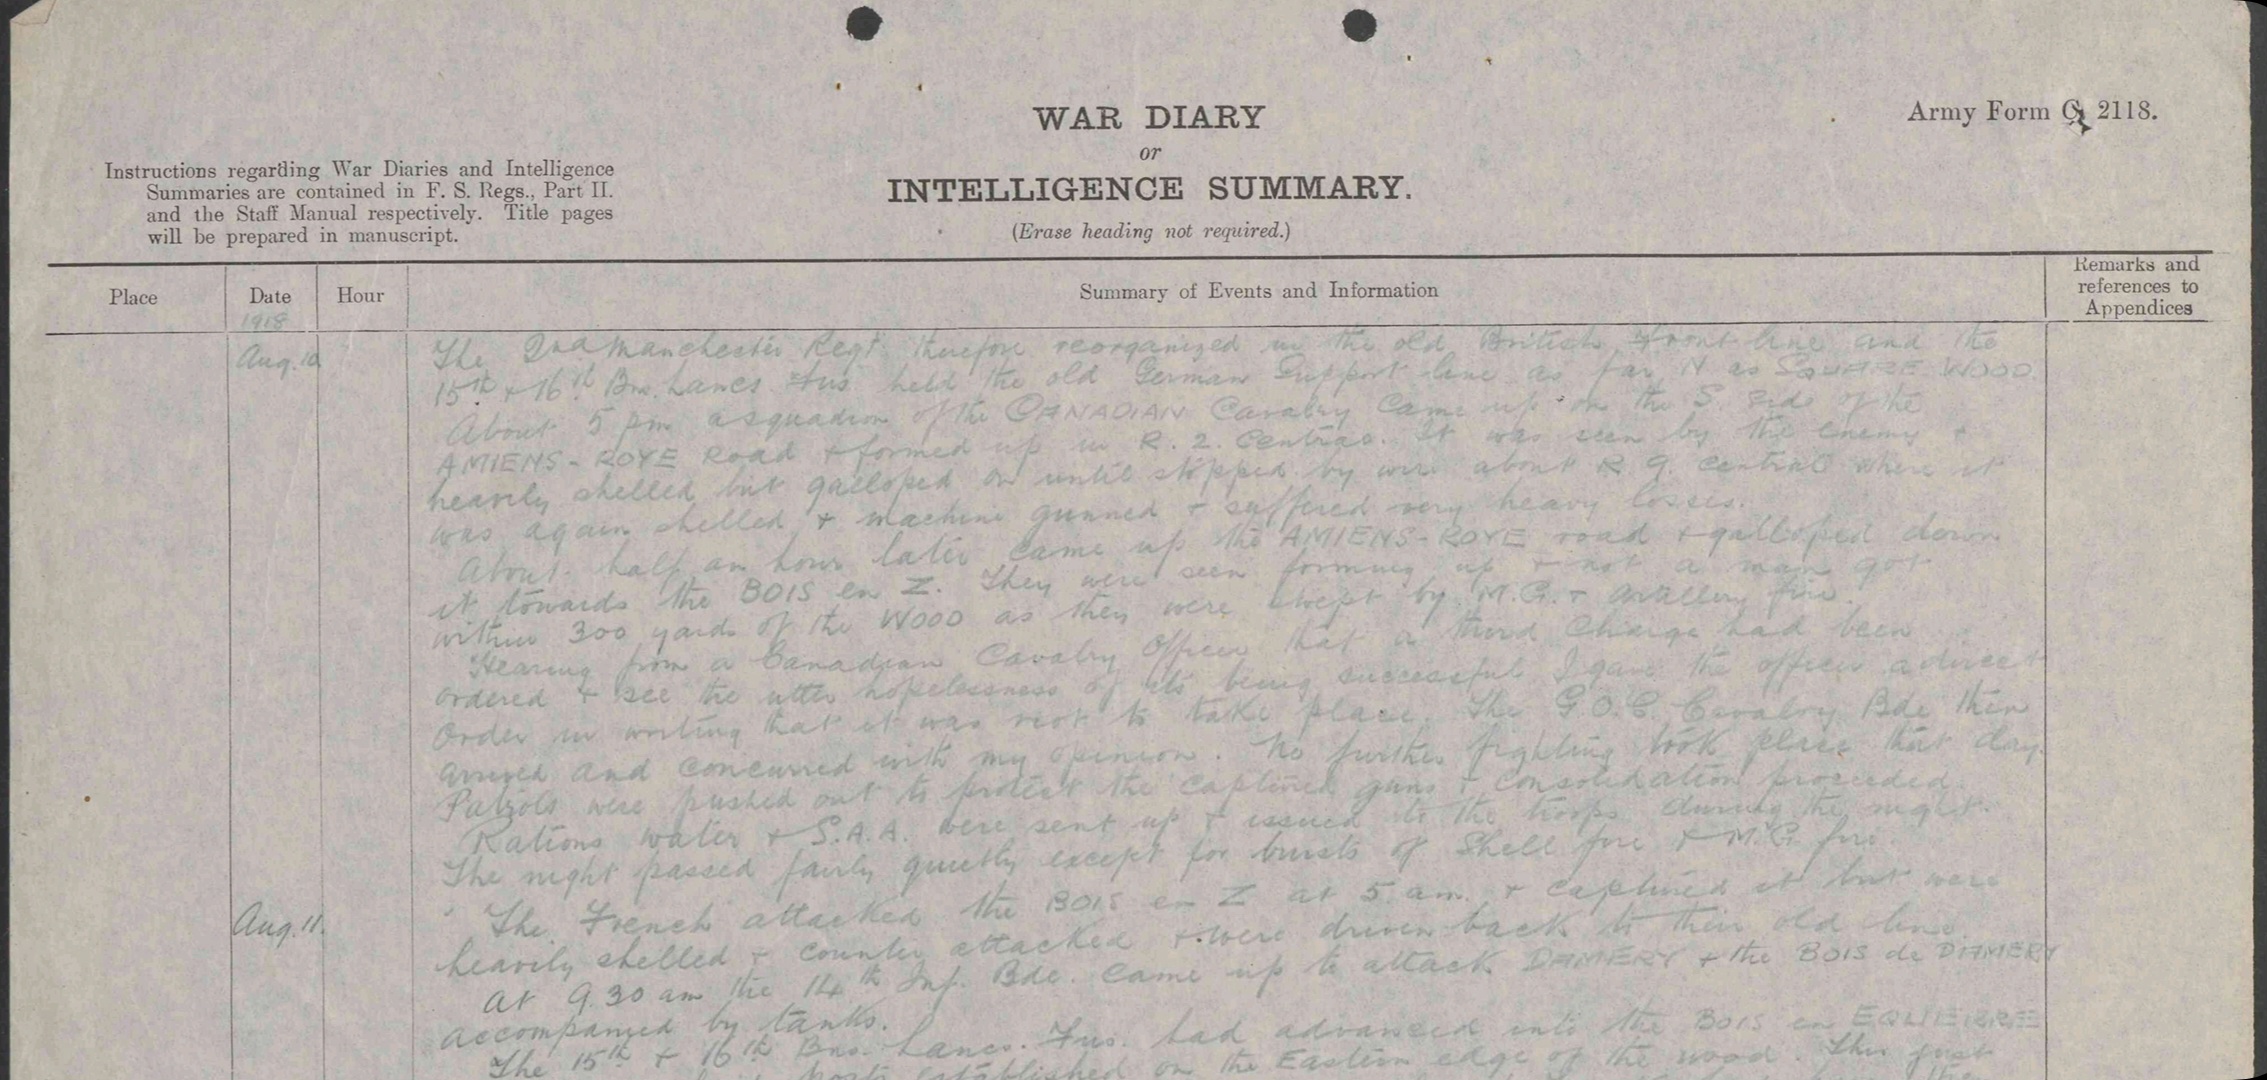 WAR DIARY
or
INTELLIGENCE SUMMARY.
(Erase heading not required.)
Army Form C. 2118.
Instructions regarding War Diaries and Intelligence
Summaries are contained in F. S. Regs., Part II.
and the Staff Manual respectively. Title pages
will be prepared in manuscript.
Place
Date
1918
Hour
Summary of Events and Information
Remarks and
references to
Appendices
Aug. 10
The 2nd Manchester Regt. therefore reorganized in the old British Front line and the
15th + 16th Bns. Lancs Fus held the old German Support line as far N as SQUARE WOOD.
About 5 pm a squadron of the CANADIAN Cavalry came up on the S. side of the
AMIENS-ROYE Road & formed up in R. 2. Central. It was seen by the enemy +
heavily shelled but galloped on until stopped by wire about R. 9. central where it
was again shelled + machine gunned + suffered very heavy losses.
About half an hour later came up the AMIENS-ROYE road + galloped down
it towards the BOIS en Z. They were seen forming up + not a man got
within 300 yards of the WOOD as they were swept by M.G. + artillery fire.
Hearing from a Canadian Cavalry Officer that a third Charge had been
ordered + see the utter hopelessness of its being successful I gave the officer a direct
order in writing that it was not to take place. The G.O.C. Cavalry Bde then
arrived and concurred with my opinion. No further fighting took place that day.
Patrols were pushed out to protect the captured guns + consolidation proceeded.
Rations water + S.A.A. were sent up + issued to the troops during the night.
The night passed fairly quietly except for bursts of Shell fire + M.G. fire.
Aug. 11.
The French attacked the BOIS en Z at 5. am. + captured it but were
heavily shelled + counter attacked + were driven back to their old line.
At 9.30 am the 14th Inf. Bde. came up to attack DAMERY + the BOIS de DAMERY
accompanied by tanks.
The 15th + 16th Bns. Lancs. Fus. had advanced into the BOIS en EQUIERRE
posts established on the Eastern edge of the wood. This